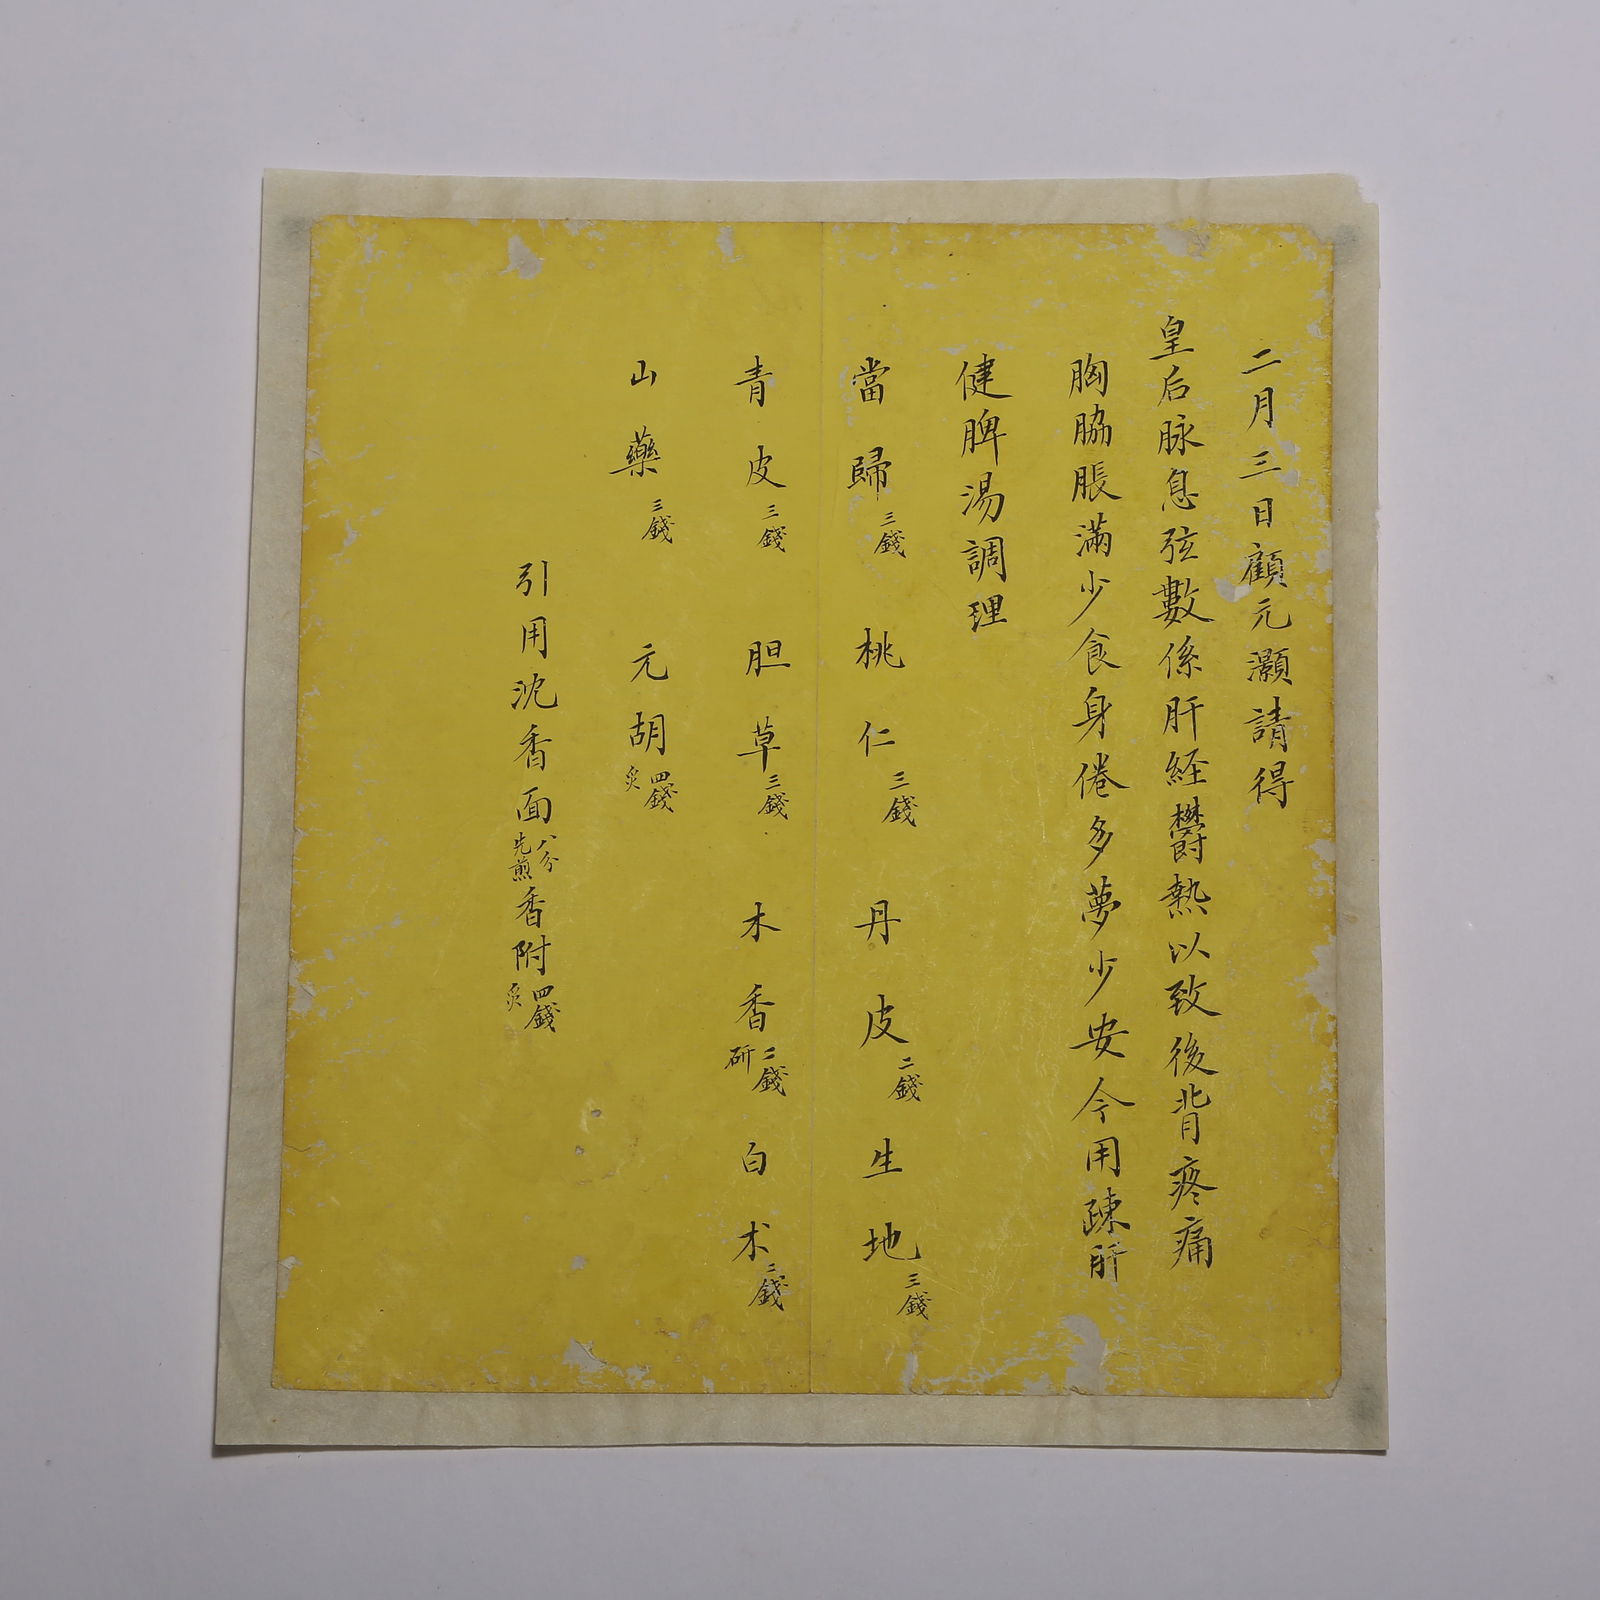 二月三日顧元灝請得
皇后脉息弦數係肝経欝熱以致後背疼痛
胸脇脹滿少食身倦多夢少安今用疎肝
健脾湯調理
當歸三錢 桃仁三錢 丹皮二錢 生地三錢
青皮三錢 胆草三錢 木香二錢研 白术二錢
山藥三錢 元胡四錢炙
引用沈香面八分先煎香附四錢炙